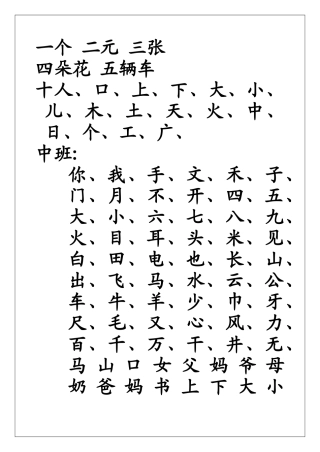 一个 二元 三张
四朵花 五辆车
十人、口、上、下、大、小、
儿、木、土、天、火、中、
日、个、工、广、
中班:
你、我、手、文、禾、子、
门、月、不、开、四、五、
大、小、六、七、八、九、
火、目、耳、头、米、见、
白、田、电、也、长、山、
出、飞、马、水、云、公、
车、牛、羊、少、巾、牙、
尺、毛、又、心、风、力、
百、千、万、干、井、无、
马 山 口 女 父 妈 爷 母
奶 爸 妈 书 上 下 大 小